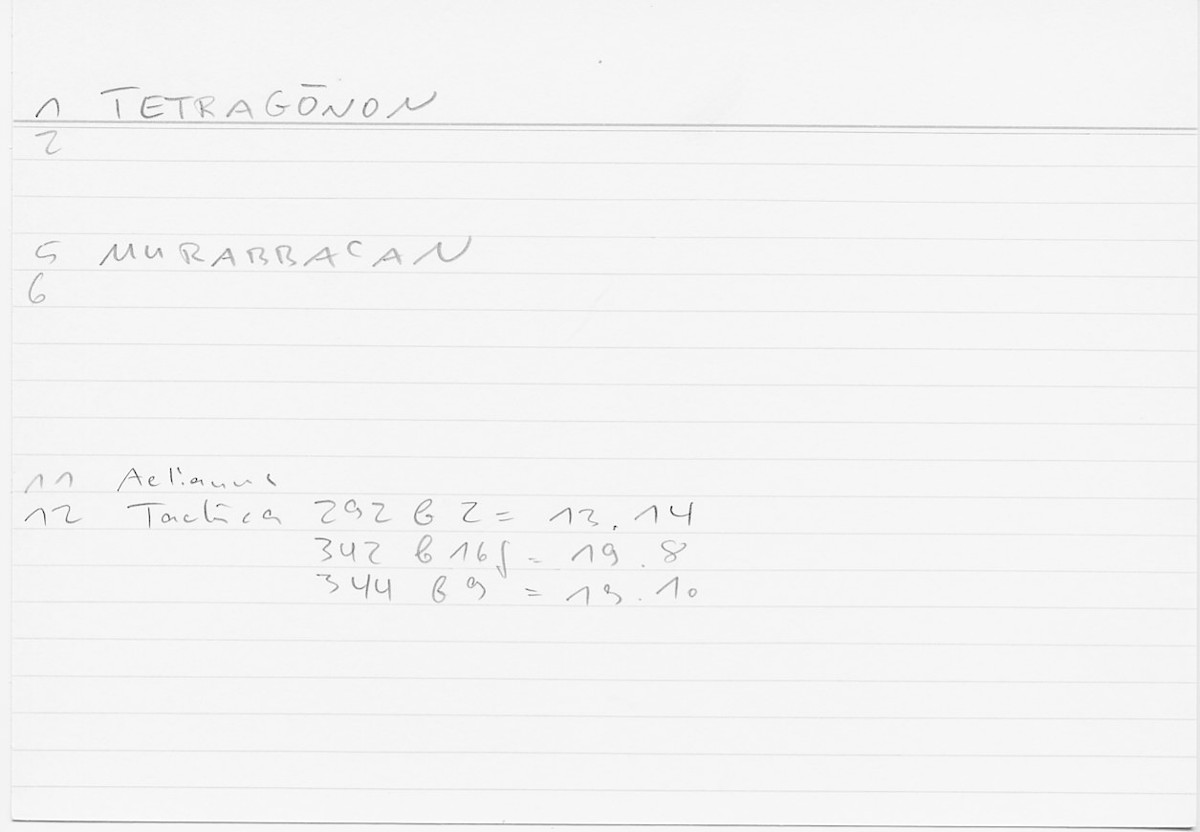 1 TETRAGŌNON
2
5 MURABBAᶜAN
6
11 Aelianus
12 Tactica 292 b 2 = 13.14
342 b 16f = 19.8
344 b 9 = 19.10